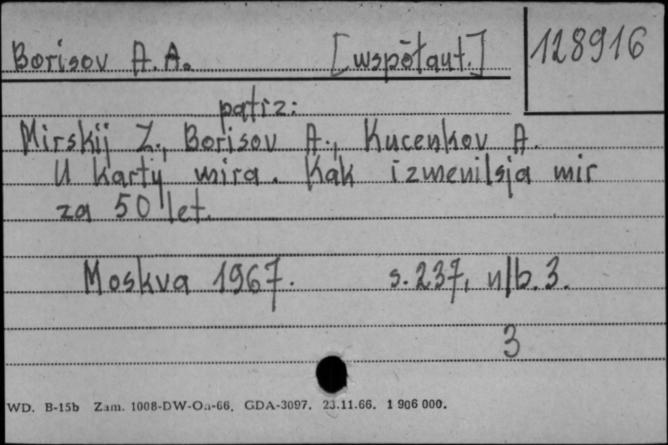 Borisov A.A. [współaut.] 128916
patrz:
Mirskij Z., Borisov A., Kucenkov A.
U karty mira. Kak izmenilsja mir
za 50 let.
Moskva 1967. s. 237, nlb. 3.
3
WD. B-15b Zam. 1008-DW-Oa-66. GDA-3097. 23.11.66. 1 906 000.